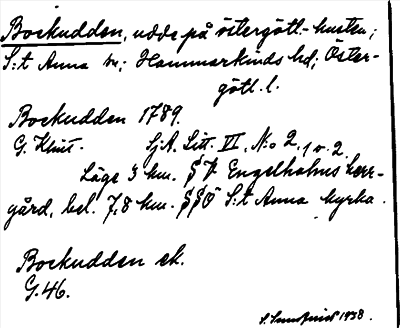 Bockudden, udde på östergötl.-kusten;
S:t Anna sn; Hammarkinds hd; Öster-
götl. l.
Bockudden 1789.
G. Klint. SjA. Litt. VI, N:o 2, 1 o. 2.
Läge 3 km. SV Engelholms herr-
gård, bel. 7,8 km. SSO S:t Anna kyrka.
Bockudden ek.
G.46.
1938.